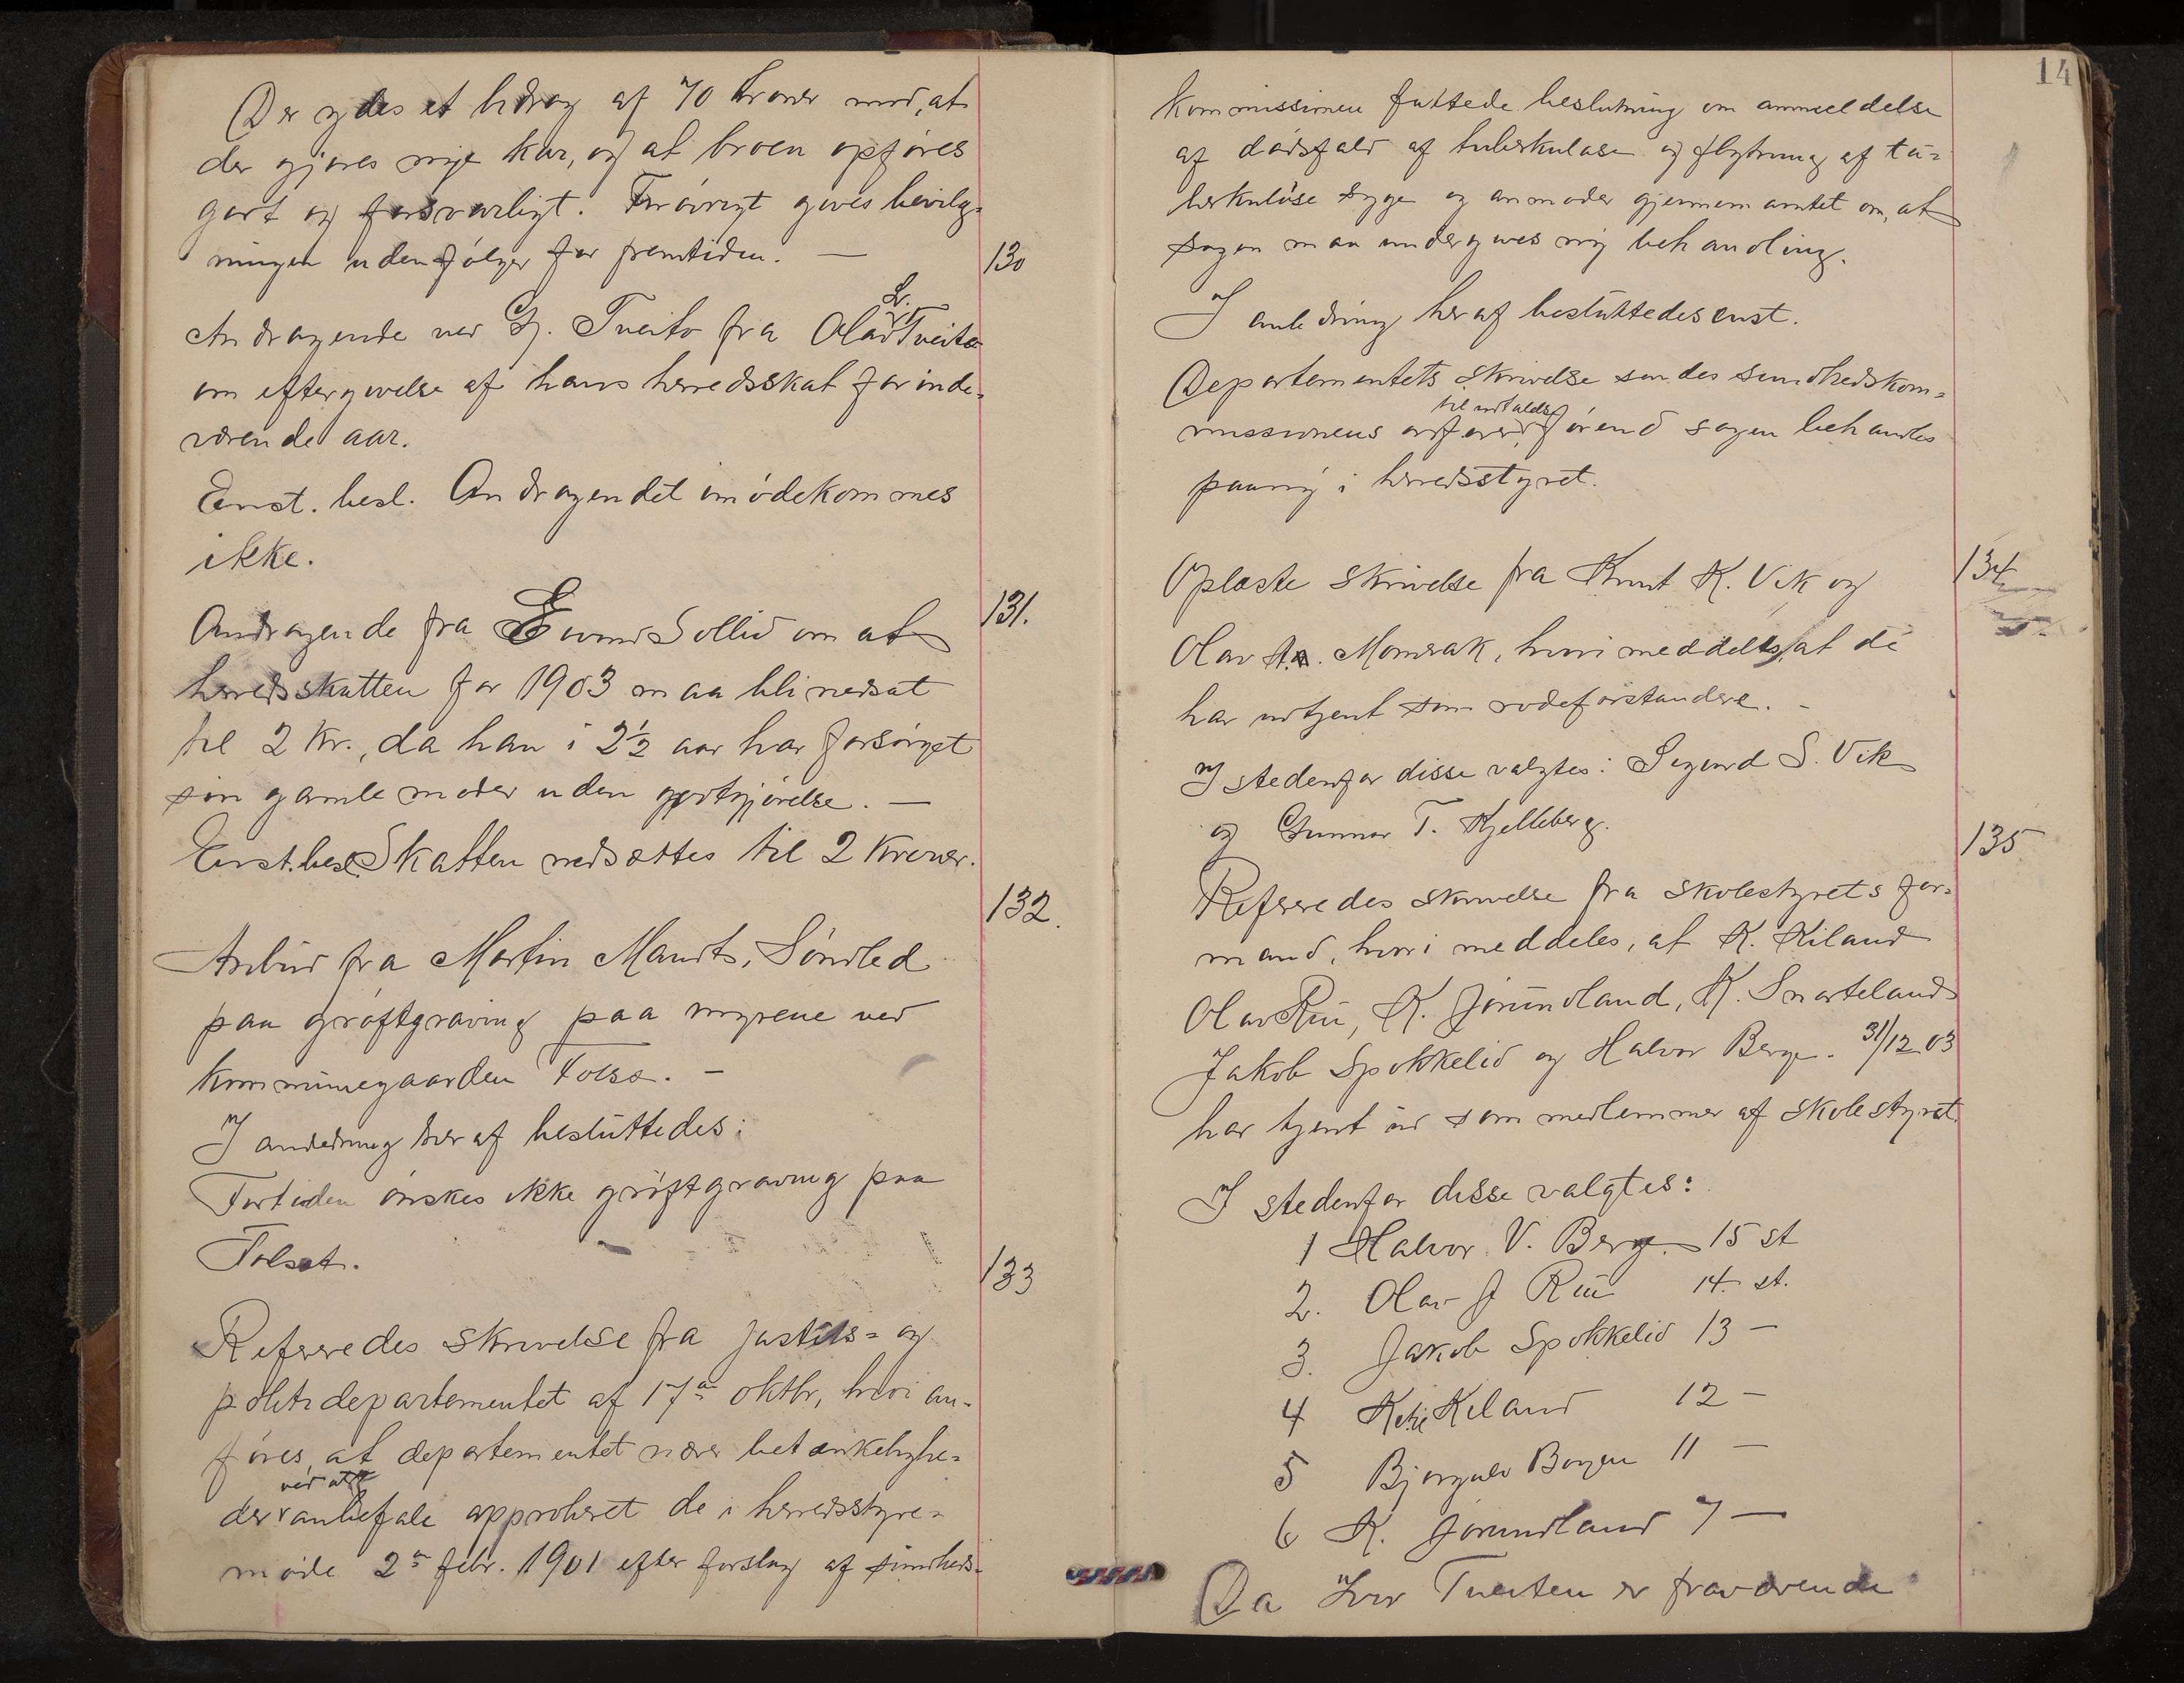 Der ydes et bidrag af 70 kroner mod, at
der gjøres nye kar, og at broen opføres
godt og forsvarligt. Forøvrigt gives bevilg-
ningen uden følger for fremtiden. —
130
Andragende ved G. Tveito fra Olav Sr. Tveito
om eftergivelse af hans herredsskat for inde-
værende aar.
Enst. besl. Andragendet imødekommes
ikke.
131.
Andragende fra Eivind Sollid om at
herredsskatten for 1903 maa bli nedsat
til 2 kr., da han i 2½ aar har forsørget
sin gamle moder uden godtgjørelse. —
Enst. besl. Skatten nedsættes til 2 kroner.
132.
Anbud fra Martin Mandts, Søndled
paa grøftgraving paa myrene ved
kommunegaarden Folsæ. –
I anledning heraf besluttedes:
Fortiden ønskes ikke grøftgraving paa
Folsæt.
133
Refereredes skrivelse fra justits- og
politidepartementet af 17de oktbr, hvori an-
føres, at departementet nærer betænkelighe-
der ved at anbefale approberet de i herredsstyre-
møde 2den febr. 1901 efter forslag af sundheds-
14
kommissionen fattede beslutning om anmeldelse
af dødsfald af tuberkulose og flytning af tu-
berkuløse syge og anmoder gjennem amtet om, at
sagen maa undergives ny behandling.
I anledning heraf besluttedes enst.
Departementets skrivelse sendes sundhedskom-
missionens ordfører til udtalelse, førend sagen behandles
paany i herredsstyret.
134
Oplæste skrivelse fra Knut K. Vik og
Olav A. Momrak, hvori meddeles, at de
har udtjent som rodeforstandere. –
I stedenfor disse valgtes: Sigurd S. Vik
og Gunnar T. Kjelleberg.
135
Refereredes skrivelse fra skolestyrets for-
mand, hvori meddeles, at K. Kiland
Olav Rui, K. Jørundland, K. Snarteland
Jakob Spokkelid og Halvor Berge. 31/12 03
har tjent ud som medlemmer af skolestyret.
I stedenfor disse valgtes:
1 Halvor V. Berge 15 st
2. Olav J Rui 14 st.
3. Jakob Spokkelid 13 —
4 Ketil Kiland 12 —
5 Bjørgulv Bøgen 11 —
6 K. Jørundland 7 —
Da Ivar Tveiten er fraværende